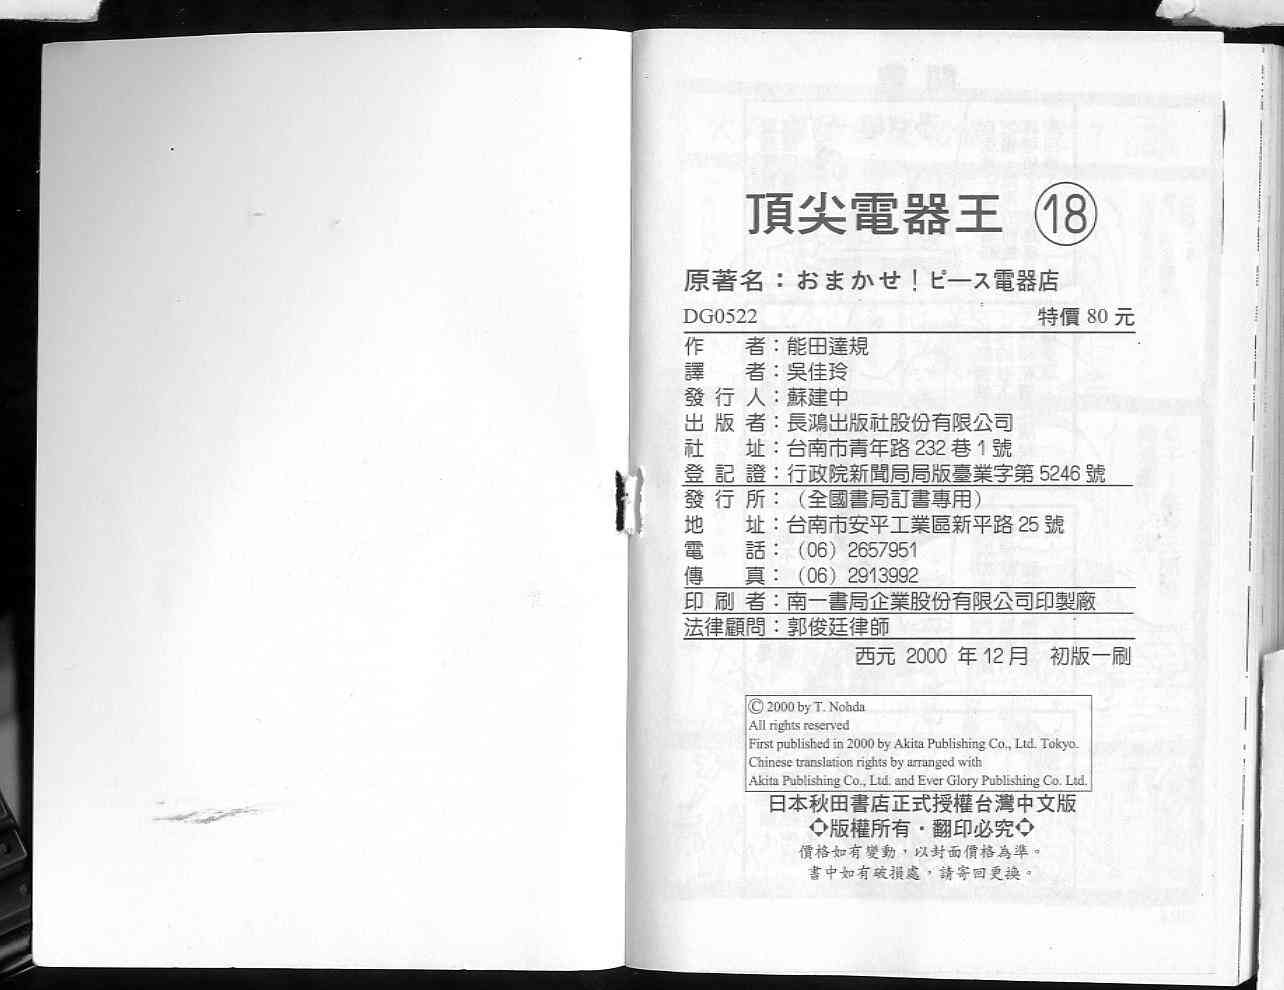 頂尖電器王 ⑱
原著名：おまかせ！ピース電器店
DG0522 特價 80 元
作者：能田達規
譯者：吳佳玲
發行人：蘇建中
出版者：長鴻出版社股份有限公司
社址：台南市青年路 232 巷 1 號
登記證：行政院新聞局局版臺業字第 5246 號
發行所：（全國書局訂書專用）
地址：台南市安平工業區新平路 25 號
電話：（06）2657951
傳真：（06）2913992
印刷者：南一書局企業股份有限公司印製廠
法律顧問：郭俊廷律師
西元 2000 年 12 月 初版一刷
© 2000 by T. Nohda
All rights reserved
First published in 2000 by Akita Publishing Co., Ltd. Tokyo.
Chinese translation rights by arranged with
Akita Publishing Co., Ltd. and Ever Glory Publishing Co. Ltd.
日本秋田書店正式授權台灣中文版
版權所有・翻印必究
價格如有變動，以封面價格為準。
書中如有破損處，請寄回更換。